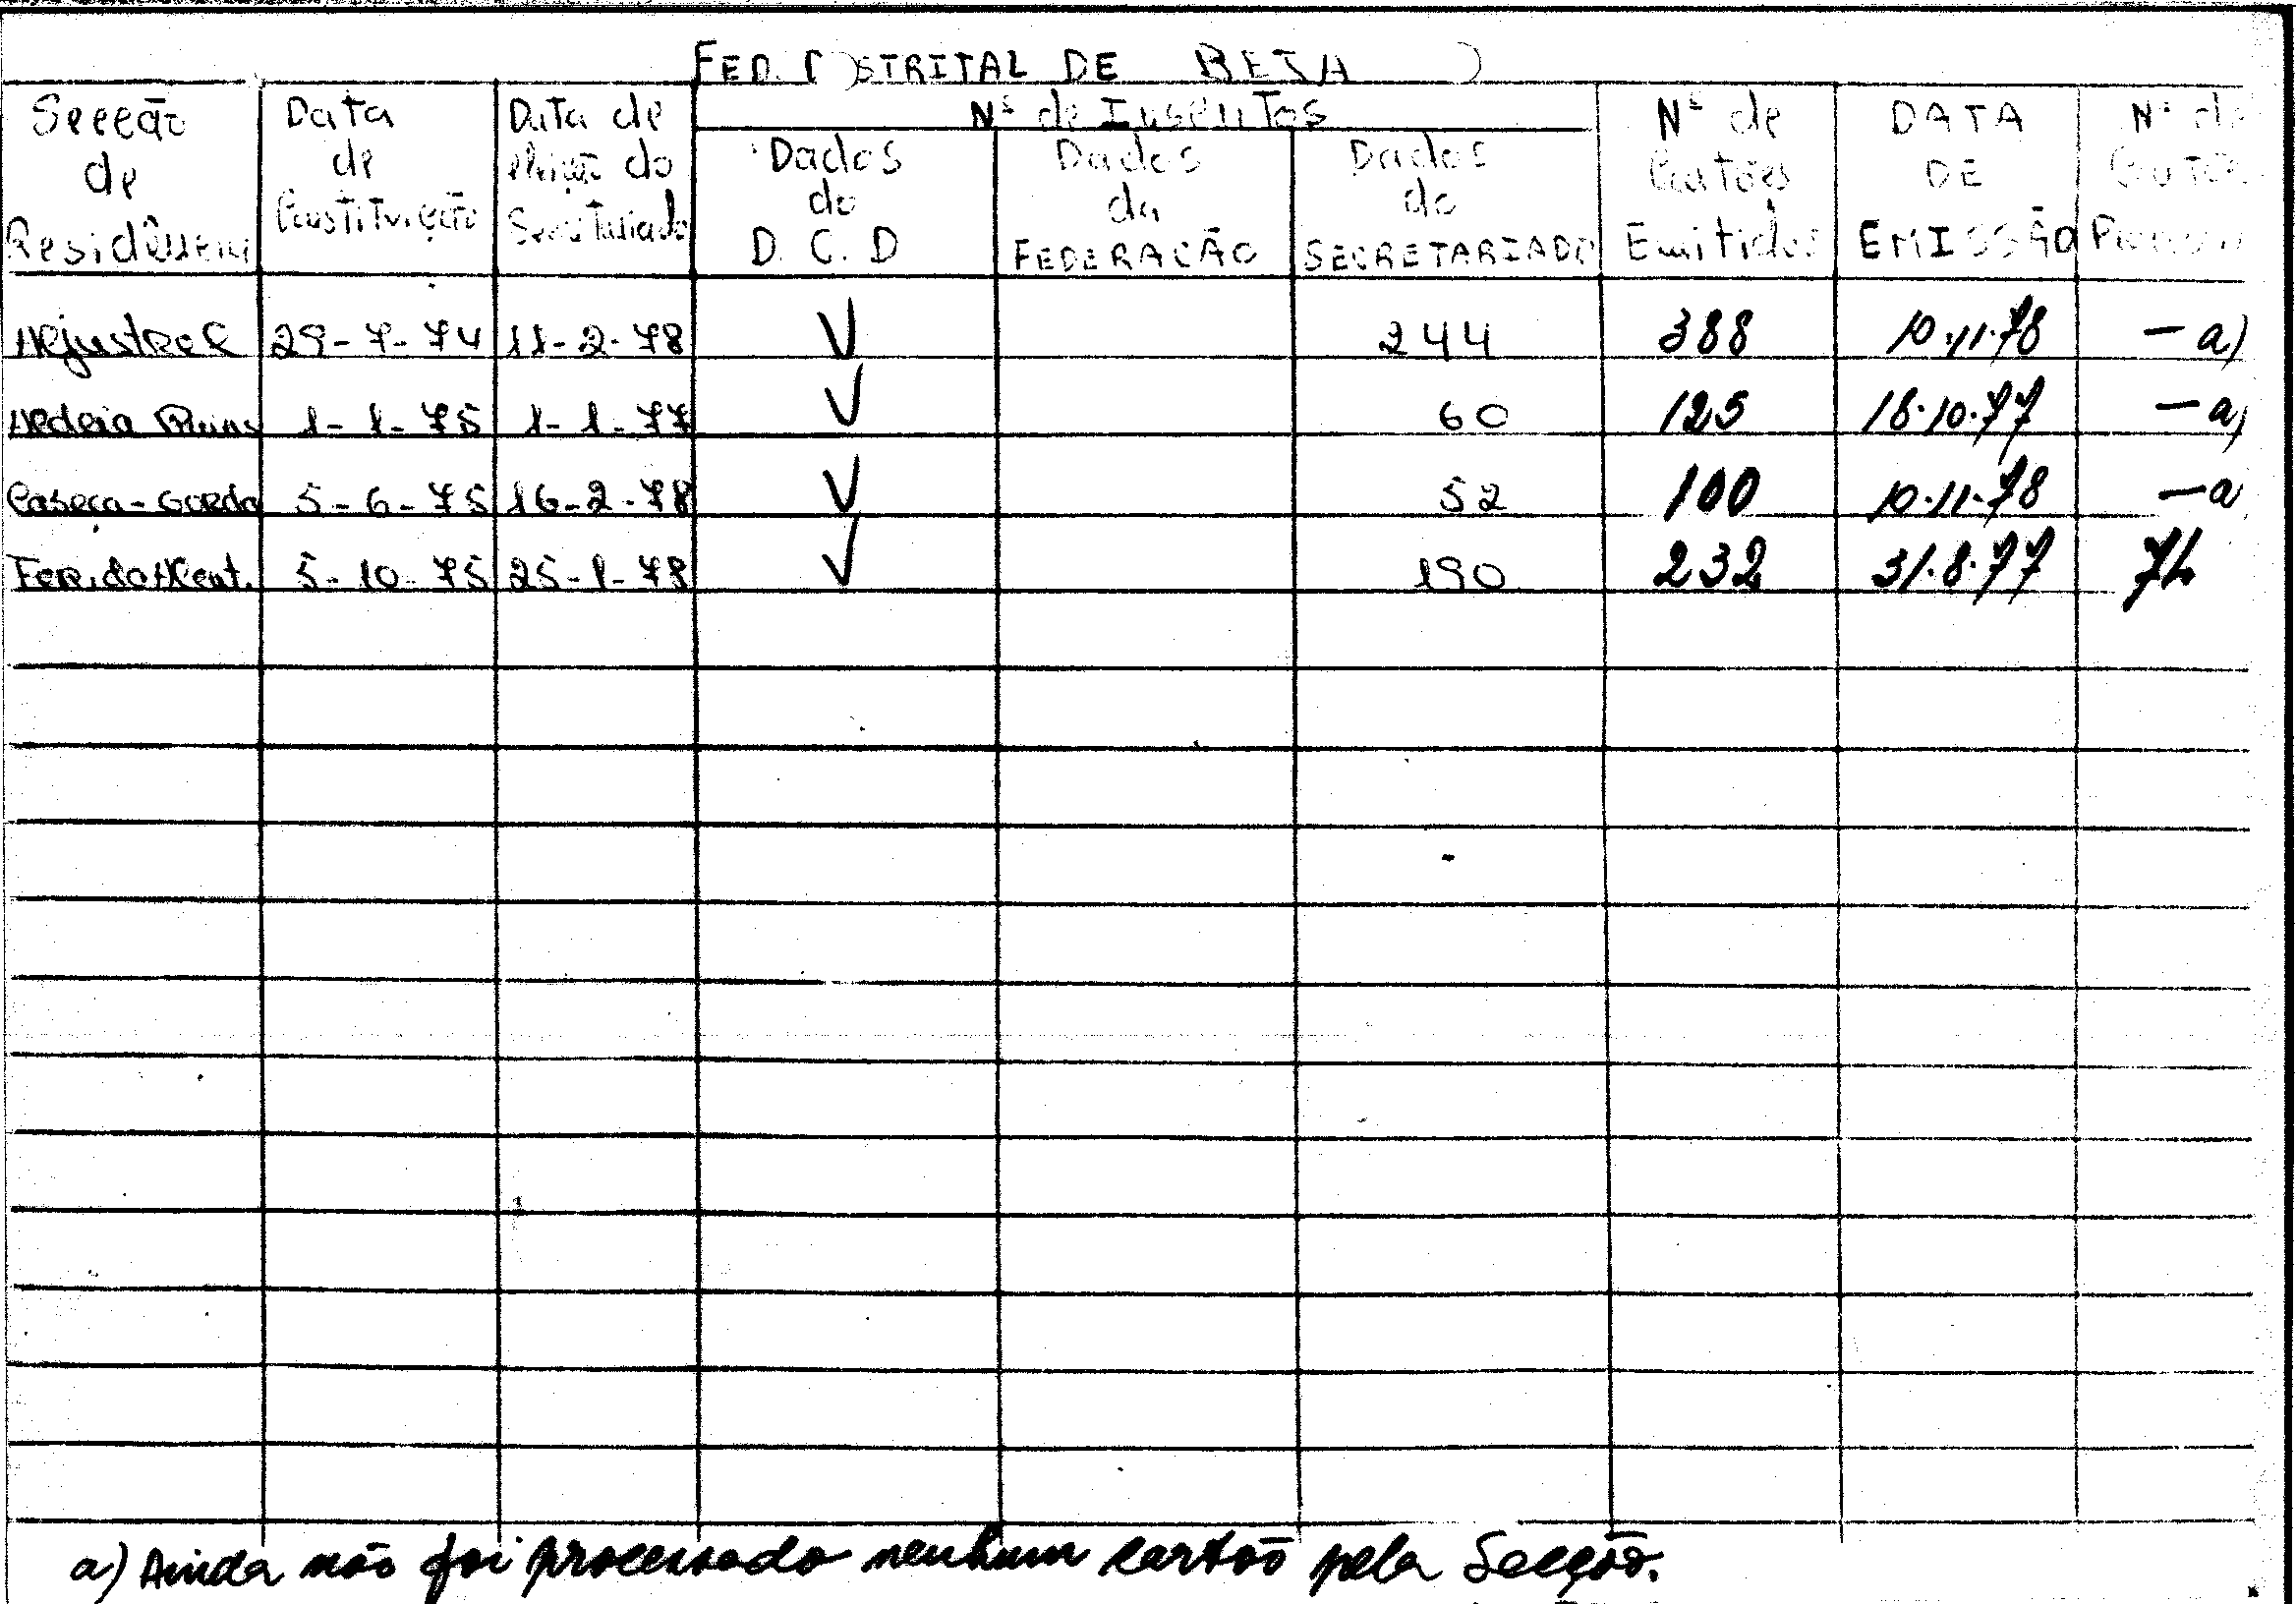 FED. DISTRITAL DE BEJA
Secção de Residência
Data de Constituição
Data de eleição do Secretariado
Nº de Inscritos
Dados do D. C. D
Dados da FEDERAÇÃO
Dados do SECRETARIADO
Nº de Cartões Emitidos
DATA DE EMISSÃO
Nº de
Aljustrel 29-7-74 11-2-78 V 244 388 10.11.78 — a)
Aldeia 1-1-75 1-1-77 V 60 125 18.10.77 — a)
Cabeça-Gorda 5-6-75 16-2-78 V 52 100 10.11.78 — a
Fer. do Alent. 5-10-75 25-1-78 V 190 232 31.8.77
a) Ainda não foi processado nenhum cartão pela Secção.